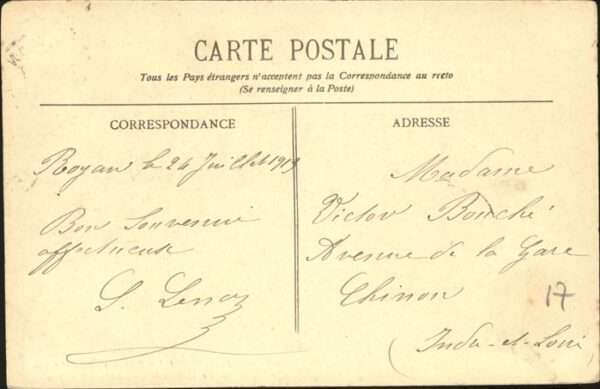 CARTE POSTALE
Tous les Pays étrangers n'acceptent pas la Correspondance au recto
(Se renseigner à la Poste)
CORRESPONDANCE
Royan le 24 Juillet 1919
Bon Souvenir
affectueux
ADRESSE
Madame
Victor Bouché
Avenue de la Gare
Chinon
17
(Indre-et-Loire